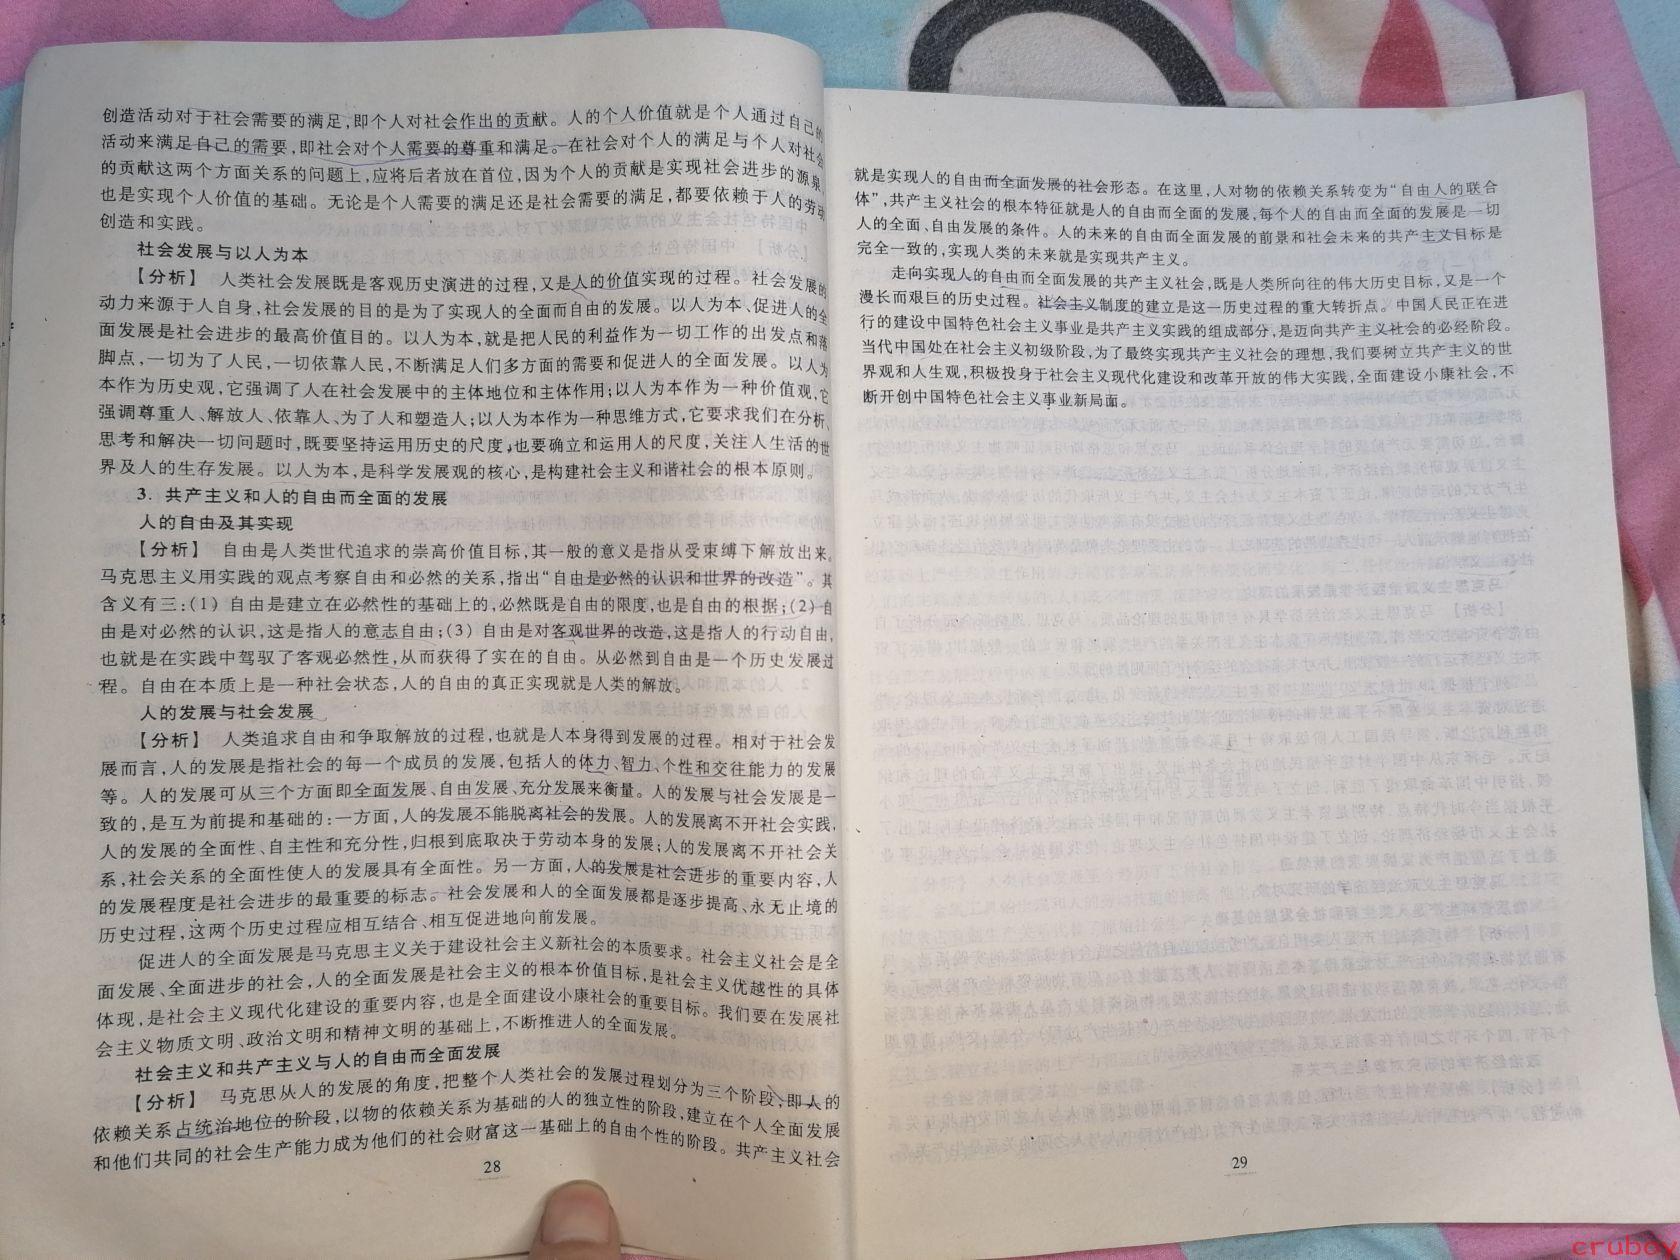 创造活动对于社会需要的满足,即个人对社会作出的贡献。人的个人价值就是个人通过自己的
活动来满足自己的需要,即社会对个人需要的尊重和满足。在社会对个人的满足与个人对社会
的贡献这两个方面关系的问题上,应将后者放在首位,因为个人的贡献是实现社会进步的源泉,
也是实现个人价值的基础。无论是个人需要的满足还是社会需要的满足,都要依赖于人的劳动
创造和实践。
社会发展与以人为本
【分析】 人类社会发展既是客观历史演进的过程,又是人的价值实现的过程。社会发展的
动力来源于人自身,社会发展的目的是为了实现人的全面而自由的发展。以人为本、促进人的全
面发展是社会进步的最高价值目的。以人为本,就是把人民的利益作为一切工作的出发点和落
脚点,一切为了人民,一切依靠人民,不断满足人们多方面的需要和促进人的全面发展。以人为
本作为历史观,它强调了人在社会发展中的主体地位和主体作用;以人为本作为一种价值观,它
强调尊重人、解放人、依靠人、为了人和塑造人;以人为本作为一种思维方式,它要求我们在分析、
思考和解决一切问题时,既要坚持运用历史的尺度,也要确立和运用人的尺度,关注人生活的世
界及人的生存发展。以人为本,是科学发展观的核心,是构建社会主义和谐社会的根本原则。
3. 共产主义和人的自由而全面的发展
人的自由及其实现
【分析】 自由是人类世代追求的崇高价值目标,其一般的意义是指从受束缚下解放出来。
马克思主义用实践的观点考察自由和必然的关系,指出“自由是必然的认识和世界的改造”。其
含义有三:(1) 自由是建立在必然性的基础上的,必然既是自由的限度,也是自由的根据;(2) 自
由是对必然的认识,这是指人的意志自由;(3) 自由是对客观世界的改造,这是指人的行动自由,
也就是在实践中驾驭了客观必然性,从而获得了实在的自由。从必然到自由是一个历史发展过
程。自由在本质上是一种社会状态,人的自由的真正实现就是人类的解放。
人的发展与社会发展
【分析】 人类追求自由和争取解放的过程,也就是人本身得到发展的过程。相对于社会发
展而言,人的发展是指社会的每一个成员的发展,包括人的体力、智力、个性和交往能力的发展
等。人的发展可从三个方面即全面发展、自由发展、充分发展来衡量。人的发展与社会发展是一
致的,是互为前提和基础的:一方面,人的发展不能脱离社会的发展。人的发展离不开社会实践,
人的发展的全面性、自主性和充分性,归根到底取决于劳动本身的发展;人的发展离不开社会关
系,社会关系的全面性使人的发展具有全面性。另一方面,人的发展是社会进步的重要内容,人
的发展程度是社会进步的最重要的标志。社会发展和人的全面发展都是逐步提高、永无止境的
历史过程,这两个历史过程应相互结合、相互促进地向前发展。
促进人的全面发展是马克思主义关于建设社会主义新社会的本质要求。社会主义社会是全
面发展、全面进步的社会,人的全面发展是社会主义的根本价值目标,是社会主义优越性的具体
体现,是社会主义现代化建设的重要内容,也是全面建设小康社会的重要目标。我们要在发展社
会主义物质文明、政治文明和精神文明的基础上,不断推进人的全面发展。
社会主义和共产主义与人的自由而全面发展
【分析】 马克思从人的发展的角度,把整个人类社会的发展过程划分为三个阶段,即人的
依赖关系占统治地位的阶段,以物的依赖关系为基础的人的独立性的阶段,建立在个人全面发展
和他们共同的社会生产能力成为他们的社会财富这一基础上的自由个性的阶段。共产主义社会
28
就是实现人的自由而全面发展的社会形态。在这里,人对物的依赖关系转变为“自由人的联合
体”,共产主义社会的根本特征就是人的自由而全面的发展,每个人的自由而全面的发展是一切
人的全面、自由发展的条件。人的未来的自由而全面发展的前景和社会未来的共产主义目标是
完全一致的,实现人类的未来就是实现共产主义。
走向实现人的自由而全面发展的共产主义社会,既是人类所向往的伟大历史目标,又是一个
漫长而艰巨的历史过程。社会主义制度的建立是这一历史过程的重大转折点。中国人民正在进
行的建设中国特色社会主义事业是共产主义实践的组成部分,是迈向共产主义社会的必经阶段。
当代中国处在社会主义初级阶段,为了最终实现共产主义社会的理想,我们要树立共产主义的世
界观和人生观,积极投身于社会主义现代化建设和改革开放的伟大实践,全面建设小康社会,不
断开创中国特色社会主义事业新局面。
29
cruboy